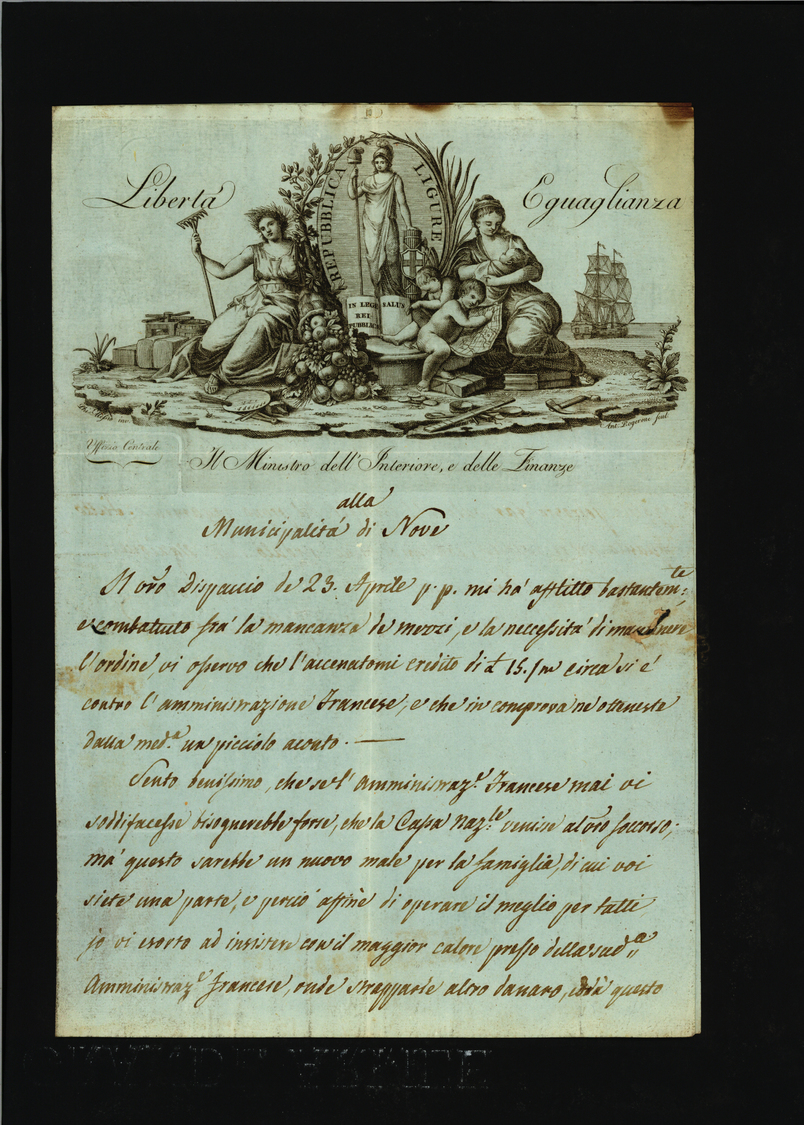 Libertà
Eguaglianza
REPUBBLICA LIGURE
IN LEGE SALUS
REI
PUBBLICÆ
inv.
Ufficio Centrale
Il Ministro dell'Interiore, e delle Finanze
alla
Municipalità di Nove
Il vro Dispaccio de 23. Aprile p.p. mi hà afflitto bastantem.te
e combattuto frà la mancanza de mezzi, e la neccessità di mantenere
l'ordine, vi osservo che l'accenatomi credito di £ 15./m circa si è
contro l'amministrazione Francese, e che in comprova ne otteneste
dalla med.a un picciolo aconto.
Sento benissimo, che se l'Amministraz.e Francese mai vi
soddisfacesse bisognerebbe forse, che la Cassa Naz.le venisse al vro soccorso;
mà questo sarebbe un nuovo male per la famiglia, di cui voi
siete una parte, e perciò affine di operare il meglio per tutti,
jo vi esorto ad insistere con il maggior calore presso della sud.a
Amministraz.e Francese, onde strapparle altro danaro, questo